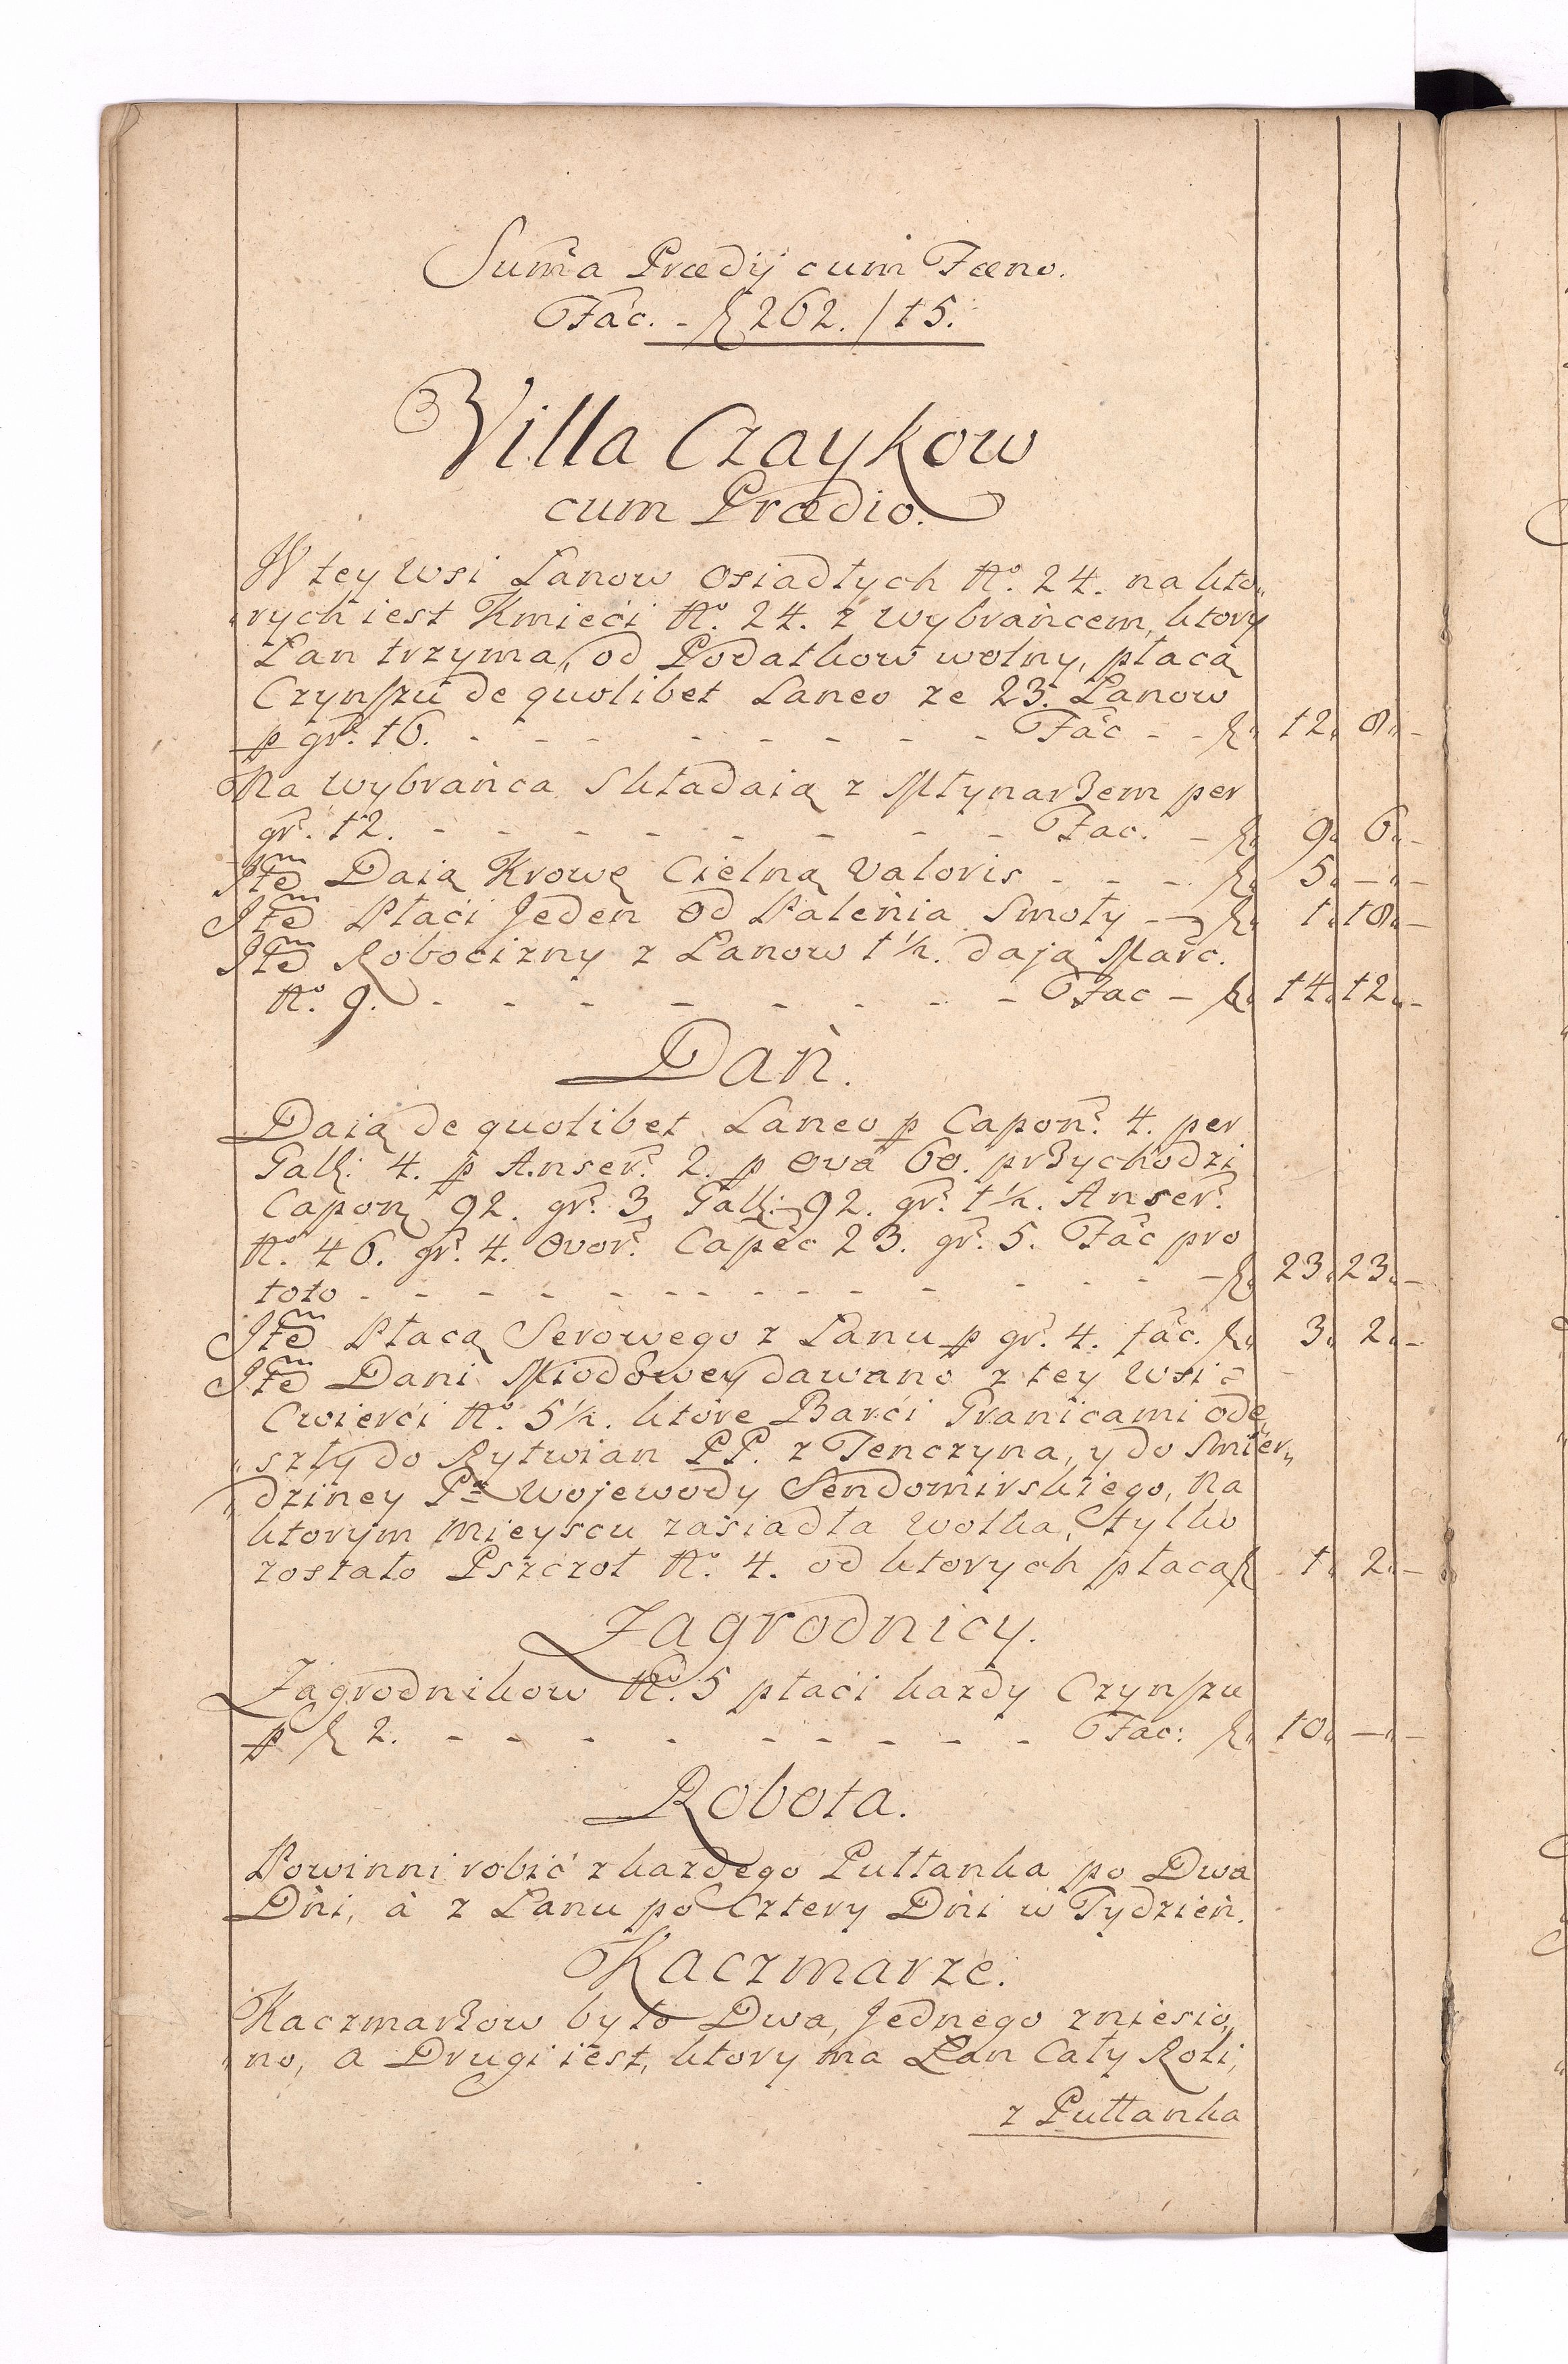 Sum̃a Prædij cum Fæno.
Fac. - fl 262. / 15.
Villa Czaykow
cum Prædio.
W tey wsi Lanow osiadłych No. 24. na kto„
„rych iest Kmieći No. 24. z wybrańcem, ktory
Łan trzyma, od Podatkow wolny, płacą
Czynszu de quolibet Laneo ze 23. Lanow
p gr. 16. - - - - - - - - - Fac - - fl. 12. 8. -
Na wybrańca składaią z Młynarzem per
gr. 12. - - - - - - - - - Fac. - fl. 9. 6. -
Itẽm Daią Krowę Cielną valoris - - - fl. 5. - -
Itẽm Płaći Jeden od Palenia Smoły - fl. 1. 18. -
Itẽm Robocizny z Lanow 1½. dają Marc.
No. 9. - - - - - - - - Fac - fl. 14. 12. -
Dań.
Daią de quolibet Laneo p Capon. 4. per
Gall. 4. p Anser. 2. p Ova 60. przychodzi
Capon 92. gr. 3. Gall. 92. gr. 1½. Anser.
No. 46. gr. 4. Ovor. Capec 23. gr. 5. Fac pro
toto - - - - - - - - - - - - - fl. 23. 23. -
Itẽm Płacą Serowego z Lanu p gr. 4. fac. fl. 3. 2. -
Itẽm Dani Miodowey dawano z tey wsi
Cwierći No. 5½. ktore Barći Granicami ode„
„szły do Rytwian PP. z Tenczyna, y do Smier„
„dziney Pa Wojewody Sendomirskiego, na
ktorym mieyscu zasiadła Wolka, tylko
zostało Pszczoł No. 4. od ktorych płacą fl 1. 2. -
Zagrodnicy.
Zagrodnikow No. 5 płaći każdy Czynszu
p fl 2. - - - - - - - - - Fac: fl. 10. - -
Robota.
Powinni robić z każdego Pułłanka po Dwa
Dni, à z Lanu po Cztery Dni w Tydzień.
Kaczmarze.
Kaczmarzow było Dwa, Jednego zniesio„
„no, a Drugi iest, ktory ma Łan Cały Roli,
z Pułłanka